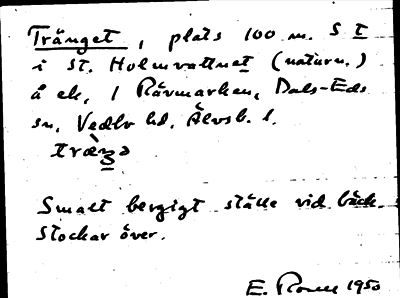 Trånget, plats 100 m. S I
i St. Holmvattnet (naturn.)
å ek, 1 Rävmarken, Dals-Eds
sn, Vedbo hd, Älvsb. l.
Smalt bergigt ställe vid bäck.
Stockar över.
E. 1950